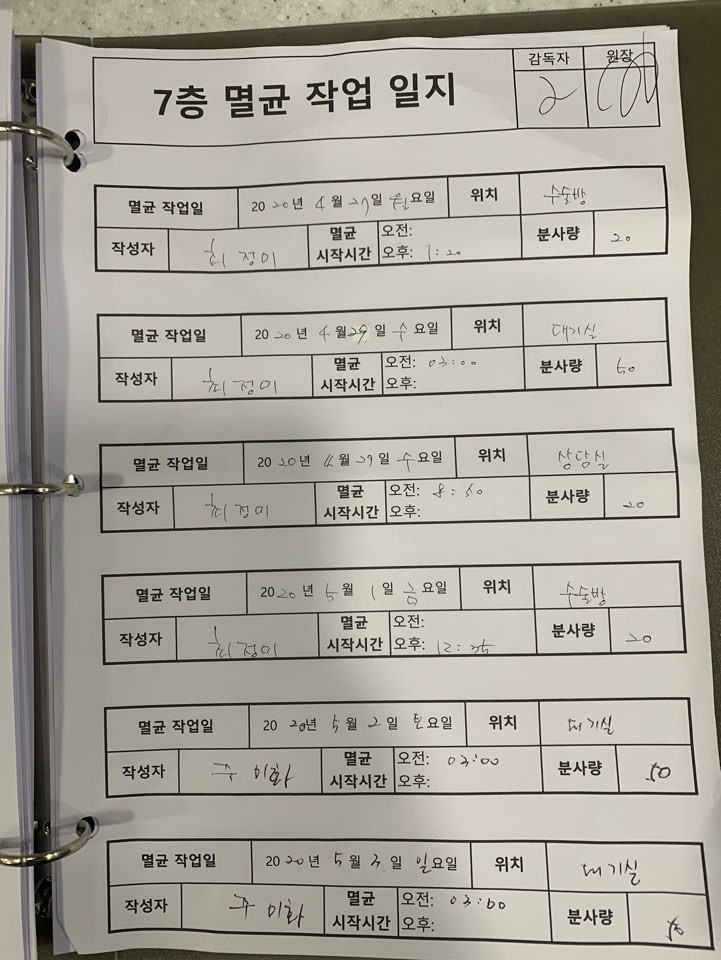 7층 멸균 작업 일지
감독자 원장
멸균 작업일 2020년 4월 27일 월요일 위치 수술방
작성자 최정미 멸균 시작시간 오전: 분사량 20
오후: 1:20
멸균 작업일 2020년 4월 29일 수요일 위치 대기실
작성자 최정미 멸균 시작시간 오전: 03:00 분사량 50
오후:
멸균 작업일 2020년 4월 29일 수요일 위치 상담실
작성자 최정미 멸균 시작시간 오전: 8:50 분사량 20
오후:
멸균 작업일 2020년 5월 1일 금요일 위치 수술방
작성자 최정미 멸균 시작시간 오전: 분사량 20
오후: 12:
멸균 작업일 2020년 5월 2일 토요일 위치 대기실
작성자 주미화 멸균 시작시간 오전: 03:00 분사량 50
오후:
멸균 작업일 2020년 5월 3일 일요일 위치 대기실
작성자 주미화 멸균 시작시간 오전: 03:00 분사량 50
오후: